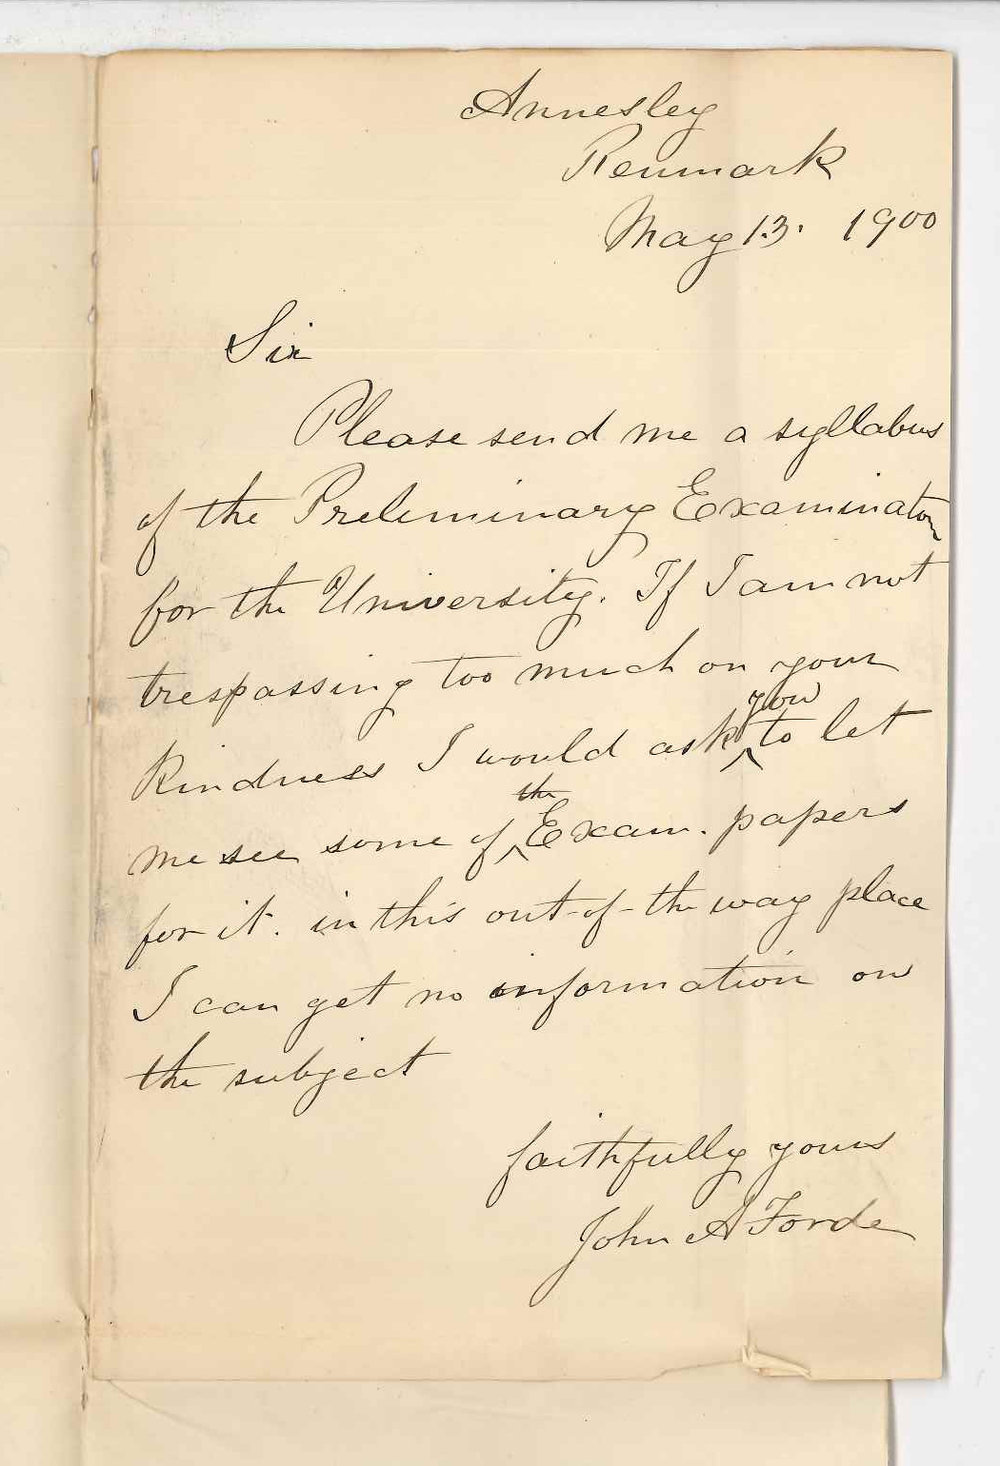 Annesley
Renmark
May 13. 1900
Sir
Please send me a syllabus
of the Preliminary Examination
for the University. If I am not
trespassing too much on your
kindness I would ask you to let
me see some of the Exam. papers
for it. in this out-of-the way place
I can get no information on
the subject
faithfully yours
John A Forde